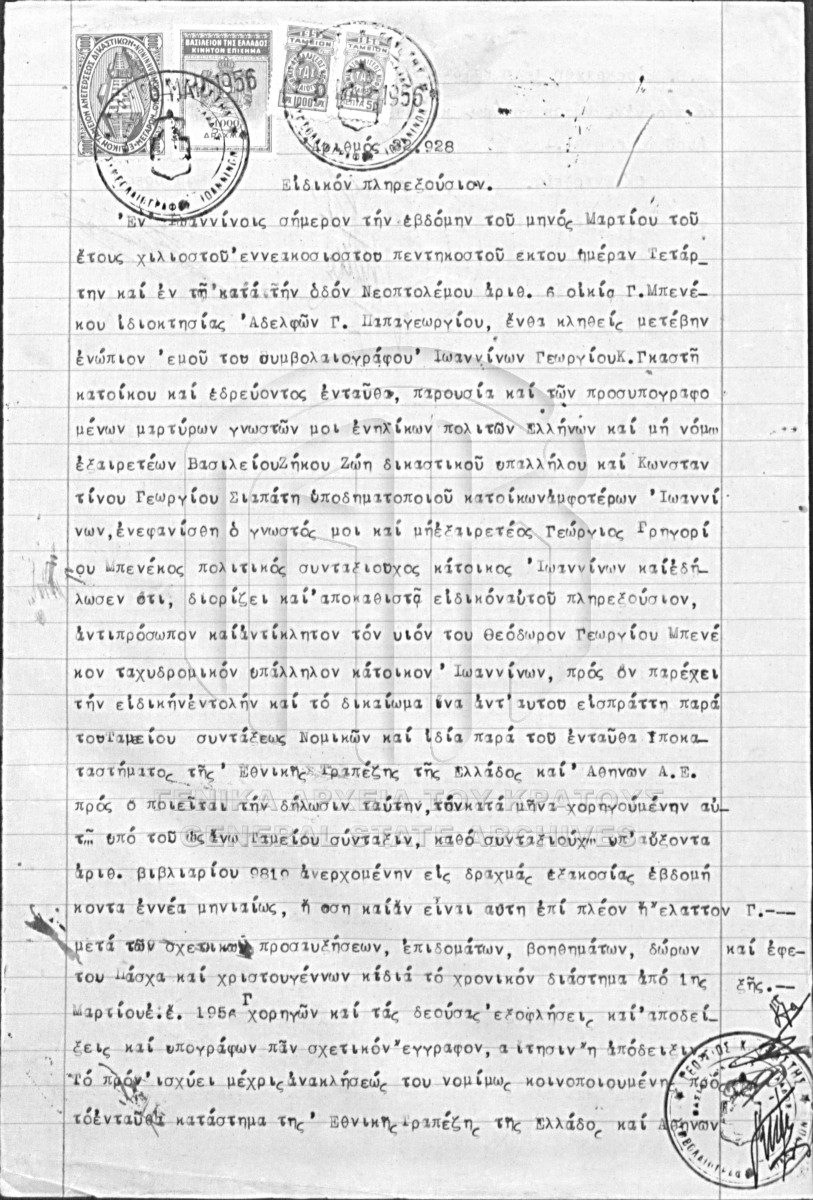 ΒΑΣΙΛΕΙΟΝ ΤΗΣ ΕΛΛΑΔΟΣ
ΚΙΝΗΤΟΝ ΕΠΙΣΗΜΑ
ΤΑΜΕΙΟΝ
ΤΑΜΕΙΟΝ
1956
1956
1000
ΙΩΑΝΝΙΝΩΝ
Αριθμός 32.928
Εἰδικόν πληρεξούσιον.
Ἐν Ἰωαννίνοις σήμερον τήν ἑβδόμην τοῦ μηνός Μαρτίου τοῦ
ἔτους χιλιοστοῦ ἐννεακοσιοστου πεντηκοστοῦ εκτου ἡμέραν Τετάρ_
την καί ἐν τῇ κατά τήν ὁδόν Νεοπτολέμου ἀριθ. 6 οἰκίᾳ Γ.Μπενέ-
κου ἰδιοκτησίας Ἀδελφῶν Γ. Παπαγεωργίου, ἔνθα κληθείς μετέβην
ἐνώπιον ἐμοῦ του συμβολαιογράφου Ἰωαννίνων ΓεωργίουΚ.Γκαστῆ
κατοίκου καί ἑδρεύοντος ἐνταῦθα, παρουσίᾳ καί τῶν προσυπογραφο
μένων μαρτύρων γνωστῶν μοι ἐνηλίκων πολιτῶν Ἑλλήνων καί μή νόμῳ
ἐξαιρετέων ΒασιλείουΖήκου Ζώη δικαστικοῦ υπαλλήλου καί Κωνσταν
τίνου Γεωργίου Σιαπάτη ὑποδηματοποιοῦ κατοίκωνἀμφοτέρων Ἰωαννί
νων,ἐνεφανίσθη ὁ γνωστός μοι καί μήἐξαιρετέος Γεώργιος Γρηγορί
ου Μπενέκος πολιτικός συνταξιοῦχος κάτοικος Ἰωαννίνων καίἐδή_
λωσεν ὅτι, διορίζει καί ἀποκαθιστᾷ εἰδικόναὑτοῦ πληρεξούσιον,
ἀντιπρόσωπον καίἀντίκλητον τόν υἱόν του Θεόδωρον Γεωργίου Μπενέ
κον ταχυδρομικόν υπάλληλον κάτοικον Ἰωαννίνων, πρός ὅν παρέχει
τήν εἰδικήνἐντολήν καί τό δικαίωμα ἵνα ἀντ'αυτου εἰσπράττη παρά
τουΤαμείου συντάξεως Νομικῶν καί ἰδίᾳ παρά τοῦ ἐνταῦθα Υποκα-
ταστήματος τῆς Ἐθνικῆς Τραπέζης τῆς Ἑλλάδος καί Ἀθηνων Α.Ε.
πρός ὅ ποιεῖται τήν δήλωσιν ταύτην,τόνκατά μῆνα χορηγουμένην αὐ-
τῷ υπό τοῦ ὡς ἄνω Ταμείου σύνταξιν, καθό συνταξιούχῳ υπ'αὔξοντα
ἀριθ. βιβλιαρίου 9819 ἀνερχομένην εἰς δραχμάς ἑξακοσίας ἑβδομή
κοντα ἐννέα μηνιαίως, ἤ ὅση καίἄν εἶναι αὕτη ἐπί πλέον ἤ ἔλαττον Γ.-—
μετά τῶν σχετικῶν προσαυξήσεων, ἐπιδομάτων, βοηθημάτων, δώρων καί ἐφε-
του Πάσχα καί χριστουγέννων κἰδιά τό χρονικόν διάστημα ἀπό 1ης ξῆς.—
Μαρτίουἐ.ἔ. 1956 Γ χορηγῶν καί τάς δεούσας ἐξοφλήσεις καί ἀποδεί_
ξεις καί υπογράφων πᾶν σχετικόν ἔγγραφον, αἴτησιν ἤ ἀπόδειξιν
Τό πρόν ἰσχύει μέχρις ἀνακλήσεώς του νομίμως κοινοποιουμένης πρό
τόἐνταῦθα κατάστημα τῆς Ἐθνικῆς Τραπέζης τῆς Ἑλλάδος καί Ἀθηνῶν
ΓΕΝΙΚΑ ΑΡΧΕΙΑ ΤΟΥ ΚΡΑΤΟΥΣ
GENERAL STATE ARCHIVES